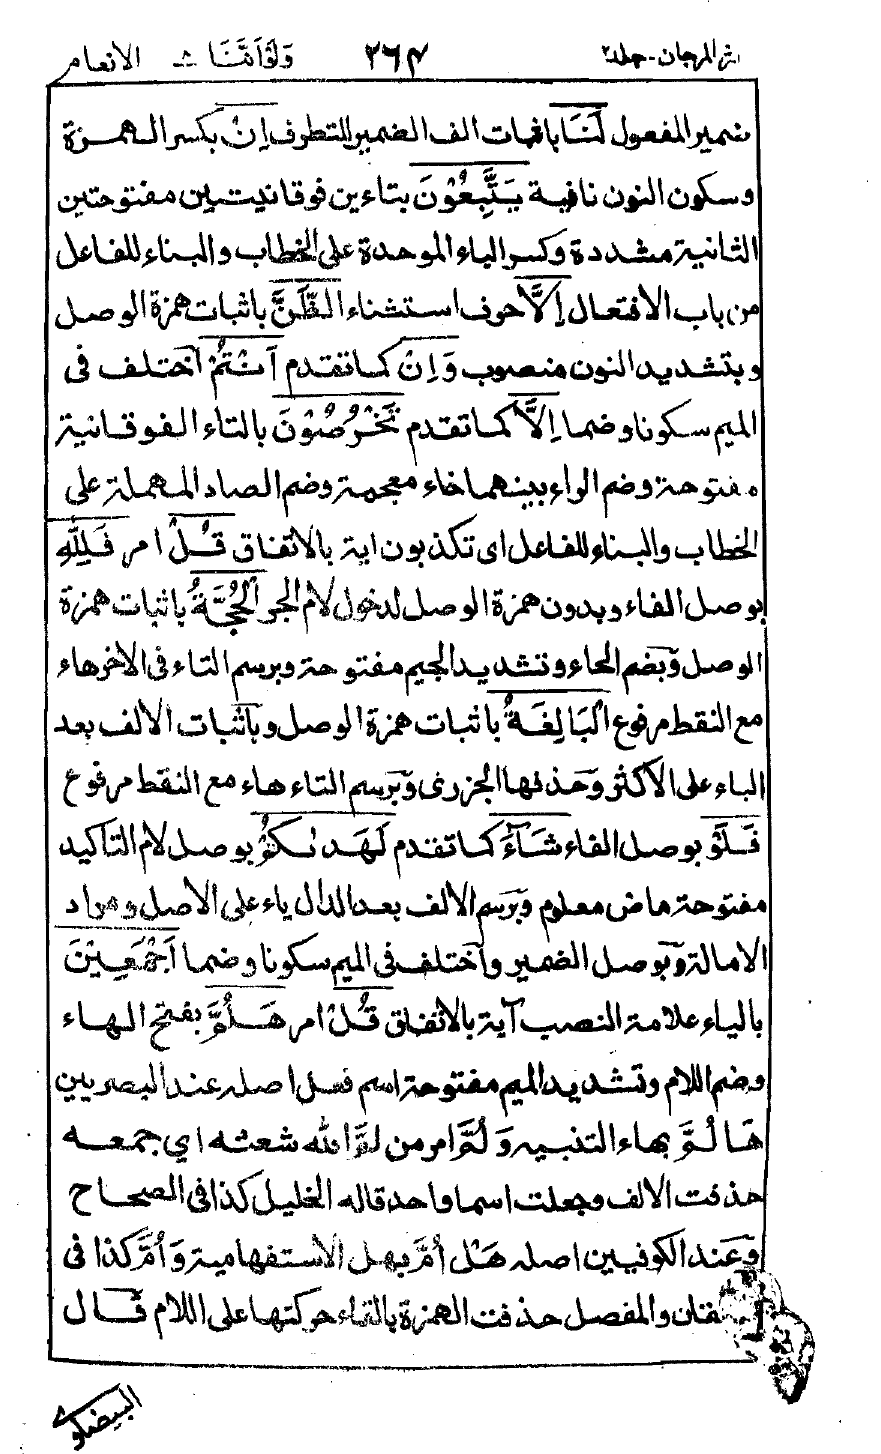 نثر المرجان-جلد٢ ٢٦٤ ولواننا ٨ الانعام
ضمير المفعول لَنَا باثبات الف الضمير للتطرف اِنْ بكسر الهمزة
وسكون النون نافية يَتَّبِعُوْنَ بتاءين فوقانيتين مفتوحتين
الثانية مشددة وكسر الباء الموحدة على الخطاب والبناء للفاعل
من باب الافتعال اِلَّا حرف استثناء الظَّنَّ باثبات همزة الوصل
وبتشديد النون منصوب وَاِنْ كما تقدم اَنْتُمْ اختلف فى
الميم سكونا وضما اِلَّا كما تقدم تَخْرُصُوْنَ بالتاء الفوقانية
مفتوحة وضم الراء بينهما خاء معجمة وضم الصاد المهملة على
الخطاب والبناء للفاعل اى تكذبون اية بالاتفاق قُلْ امر فَلِلّٰهِ
بوصل الفاء وبدون همزة الوصل لدخول لام الجر الْحُجَّةُ باثبات همزة
الوصل وبضم الحاء وتشديد الجيم مفتوحة وبرسم التاء فى الاخر هاء
مع النقط مرفوع الْبَالِغَةُ باثبات همزة الوصل وباثبات الالف بعد
الباء على الاكثر وحذفها الجزرى وبرسم التاء هاء مع النقط مرفوع
فَلَوْ بوصل الفاء شَآءَ كما تقدم لَهَدٰىكُمْ بوصل لام التاكيد
مفتوحة ماض معلوم وبرسم الالف بعد الدال ياء على الاصل ومراد
الامالة وبوصل الضمير واختلف فى الميم سكونا وضما اَجْمَعِيْنَ
بالياء علامة النصب آية بالاتفاق قُلْ امر هَلُمَّ بفتح الهاء
وضم اللام وتشديد الميم مفتوحة اسم فعل اصله عند البصريين
هَا لُمَّ بهاء التنبيه وَلُمَّ امر من لمَّ الله شعثه اي جمعه
حذفت الالف وجعلت اسما واحد قاله الخليل كذا فى الصحاح
وعند الكوفيين اصله هَلْ اُمَّ بهل الاستفهامية وَاُمَّ كذا فى
والمفصل حذفت الهمزة بالقاء حركتها على اللام قال
البيضاوى